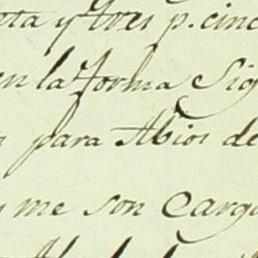 nta y tres p. cinc
en la forma Sig
para Abios de
y me son Cargo